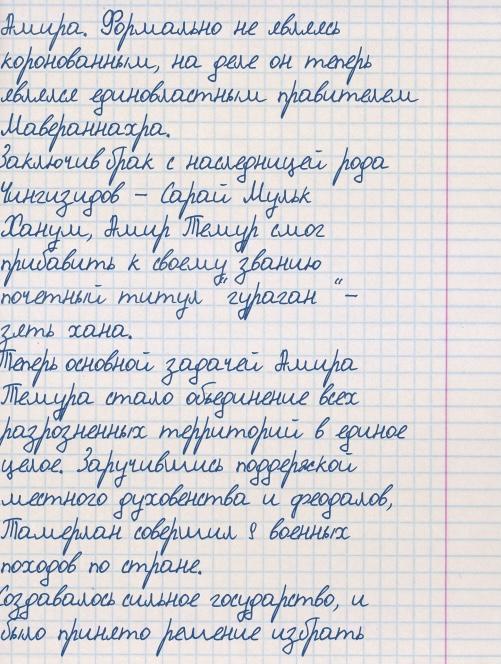 Амира. Формально не являясь
коронованным, на деле он теперь
являлся единовластным правителем
Мавераннахра.
Заключив брак с наследницей рода
Чингизидов – Сарай Мульк
Ханум, Амир Темур смог
прибавить к своему званию
почетный титул “гураган “–
зять хана.
Теперь основной задачей Амира
Темура стало объединение всех
разрозненных территорий в единое
целое. Заручившись поддержкой
местного духовенства и феодалов,
Тамерлан совершил 9 военных
походов по стране.
Создавалось сильное государство, и
было принято решение избрать